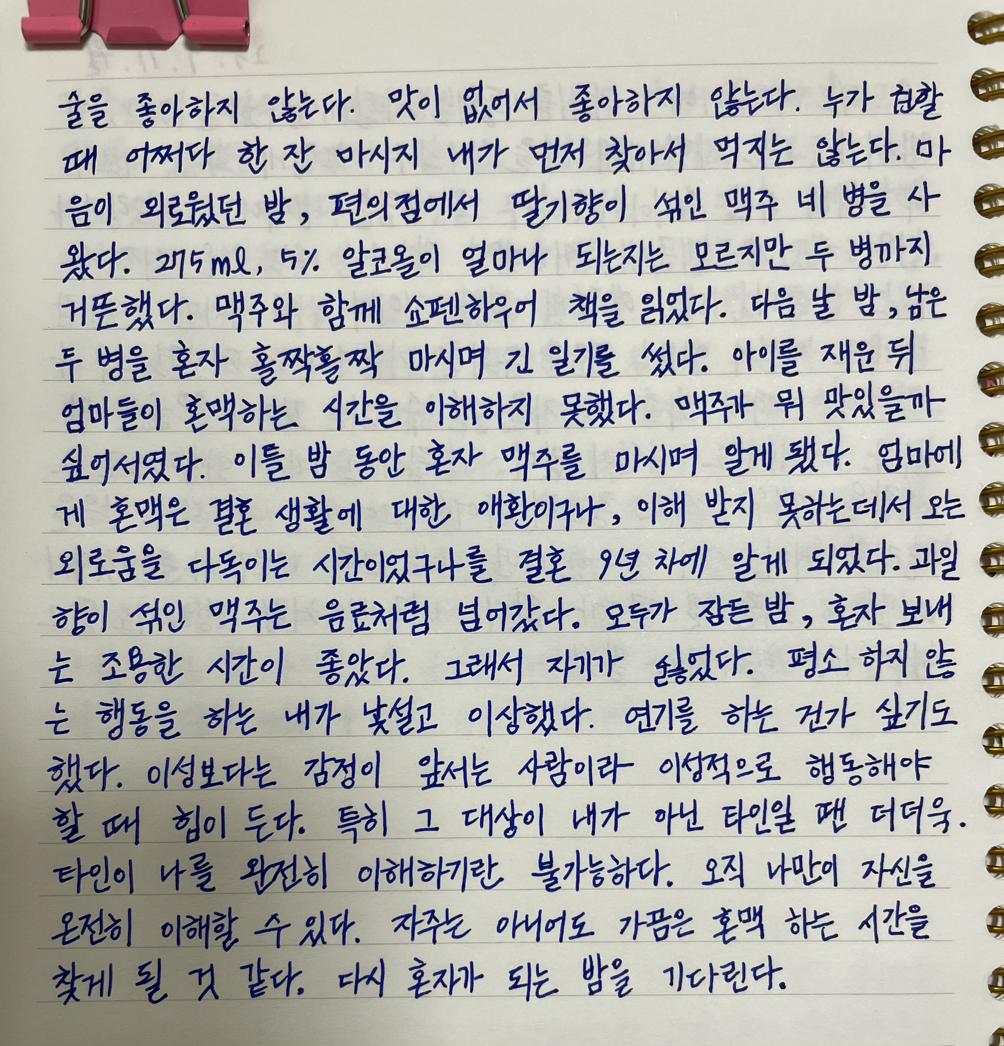 술을 좋아하지 않는다. 맛이 없어서 좋아하지 않는다. 누가 권할
때 어쩌다 한 잔 마시지 내가 먼저 찾아서 먹지는 않는다. 마
음이 외로웠던 밤, 편의점에서 딸기향이 섞인 맥주 네 병을 사
왔다. 275ml, 5% 알코올이 얼마나 되는지는 모르지만 두 병까지
거뜬했다. 맥주와 함께 쇼펜하우어 책을 읽었다. 다음 날 밤, 남은
두 병을 혼자 홀짝홀짝 마시며 긴 일기를 썼다. 아이를 재운 뒤
엄마들이 혼맥하는 시간을 이해하지 못했다. 맥주가 뭐 맛있을까
싶어서였다. 이틀 밤 동안 혼자 맥주를 마시며 알게 됐다. 엄마에
게 혼맥은 결혼 생활에 대한 애환이구나, 이해 받지 못하는데서 오는
외로움을 다독이는 시간이었구나를 결혼 9년 차에 알게 되었다. 과일
향이 섞인 맥주는 음료처럼 넘어갔다. 모두가 잠든 밤, 혼자 보내
는 조용한 시간이 좋았다. 그래서 자기가 싫었다. 평소 하지 않
는 행동을 하는 내가 낯설고 이상했다. 연기를 하는 건가 싶기도
했다. 이성보다는 감정이 앞서는 사람이라 이성적으로 행동해야
할 때 힘이 든다. 특히 그 대상이 내가 아닌 타인일 땐 더더욱.
타인이 나를 완전히 이해하기란 불가능하다. 오직 나만이 자신을
온전히 이해할 수 있다. 자주는 아니어도 가끔은 혼맥 하는 시간을
찾게 될 것 같다. 다시 혼자가 되는 밤을 기다린다.